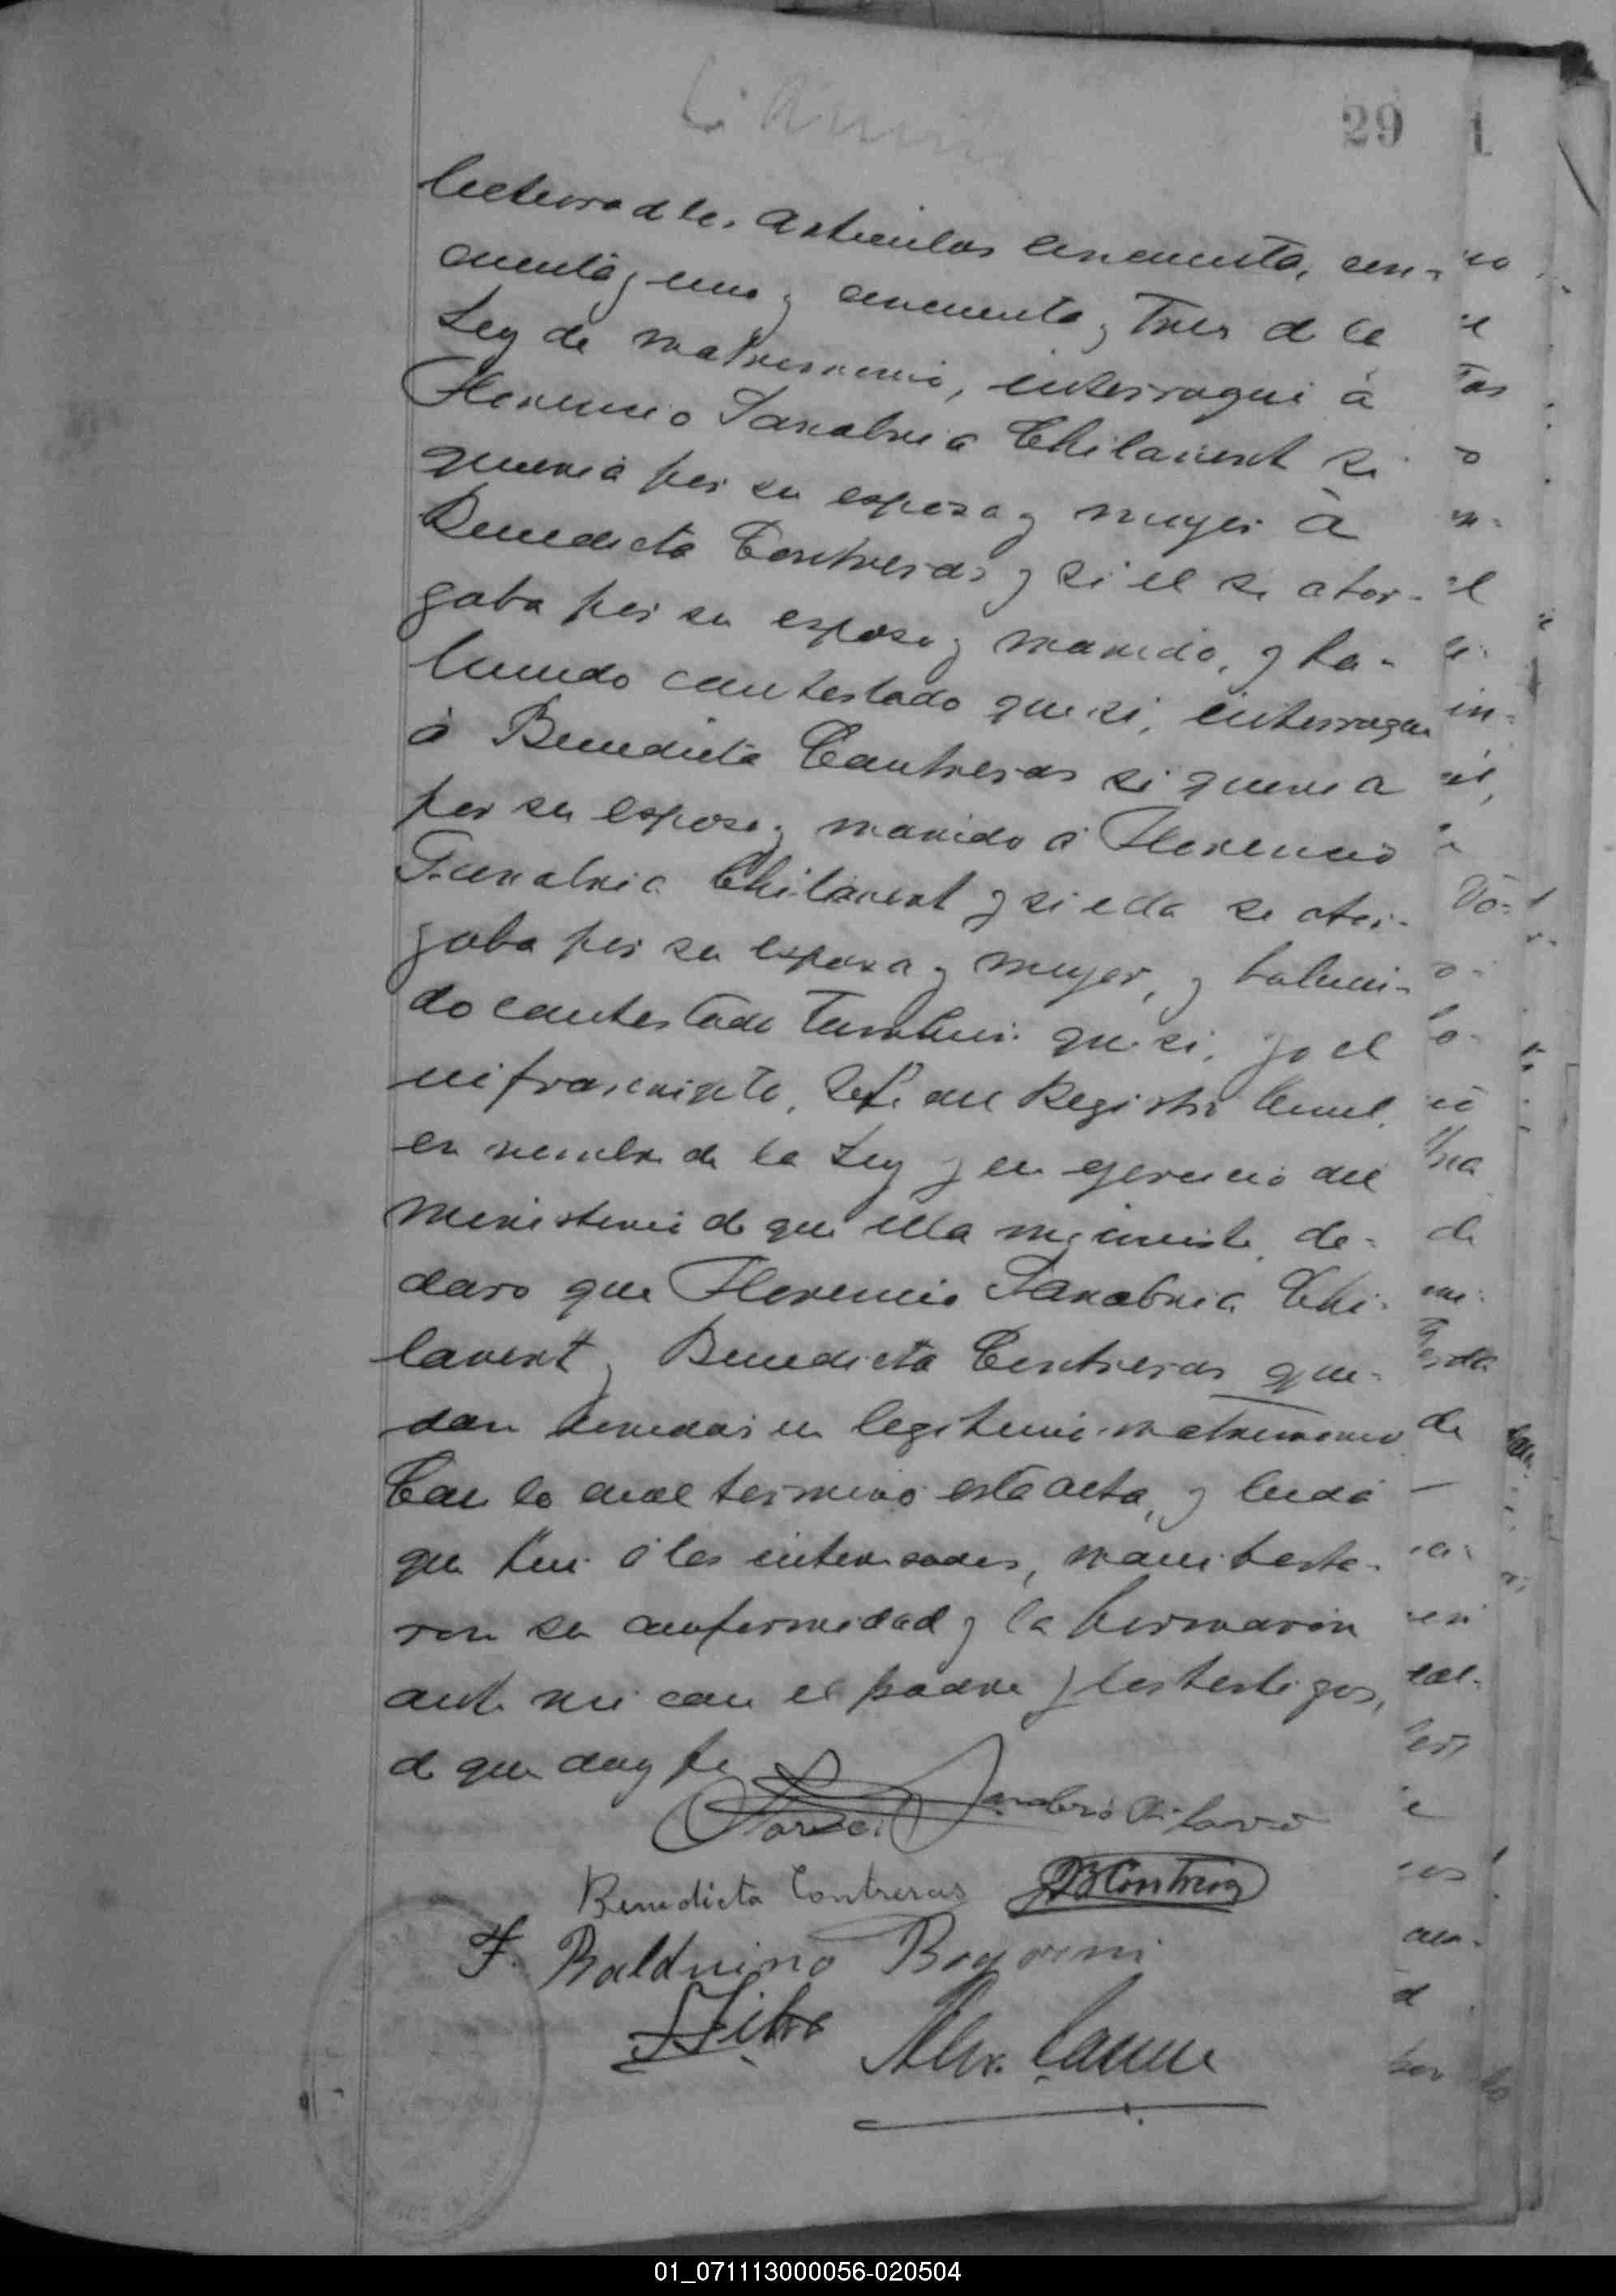 29
lectura de los articulos cincuenta, cin-
cuenta y uno y cincuenta y Tres de la
Ley de matrimonio, interrogué á
Florencio Sanabria Chilavert si
queria por su esposa y mujer á
Benedicta Contreras y si el se otor-
gaba por su esposo y marido, y ha-
biendo contestado que si, interrogué
á Benedicta Contreras si queria
por su esposo y marido á Florencio
Sanabria Chilavert y si ella se otor-
gaba por su esposa y mujer, y habien-
do contestado Tambien que si, yo el
infrascripto, Jefe del Registro Civil,
en nombre de la Ley y en ejercicio del
ministerio de que ella me inviste, de-
claro que Florencio Sanabria Chi-
lavert y Benedicta Contreras que-
dan unidos en legitimo matrimonio.
Con lo cual terminó esta acta, y leida
que fué á los interesados, manifesta-
ron su conformidad y la firmaron
ante mi con el padre y los testigos,
de que doy fe
Sanabria Chilavert
Benedicta Contreras JB Contreras
F. Balduino Bogarin
01_071113000056-020504